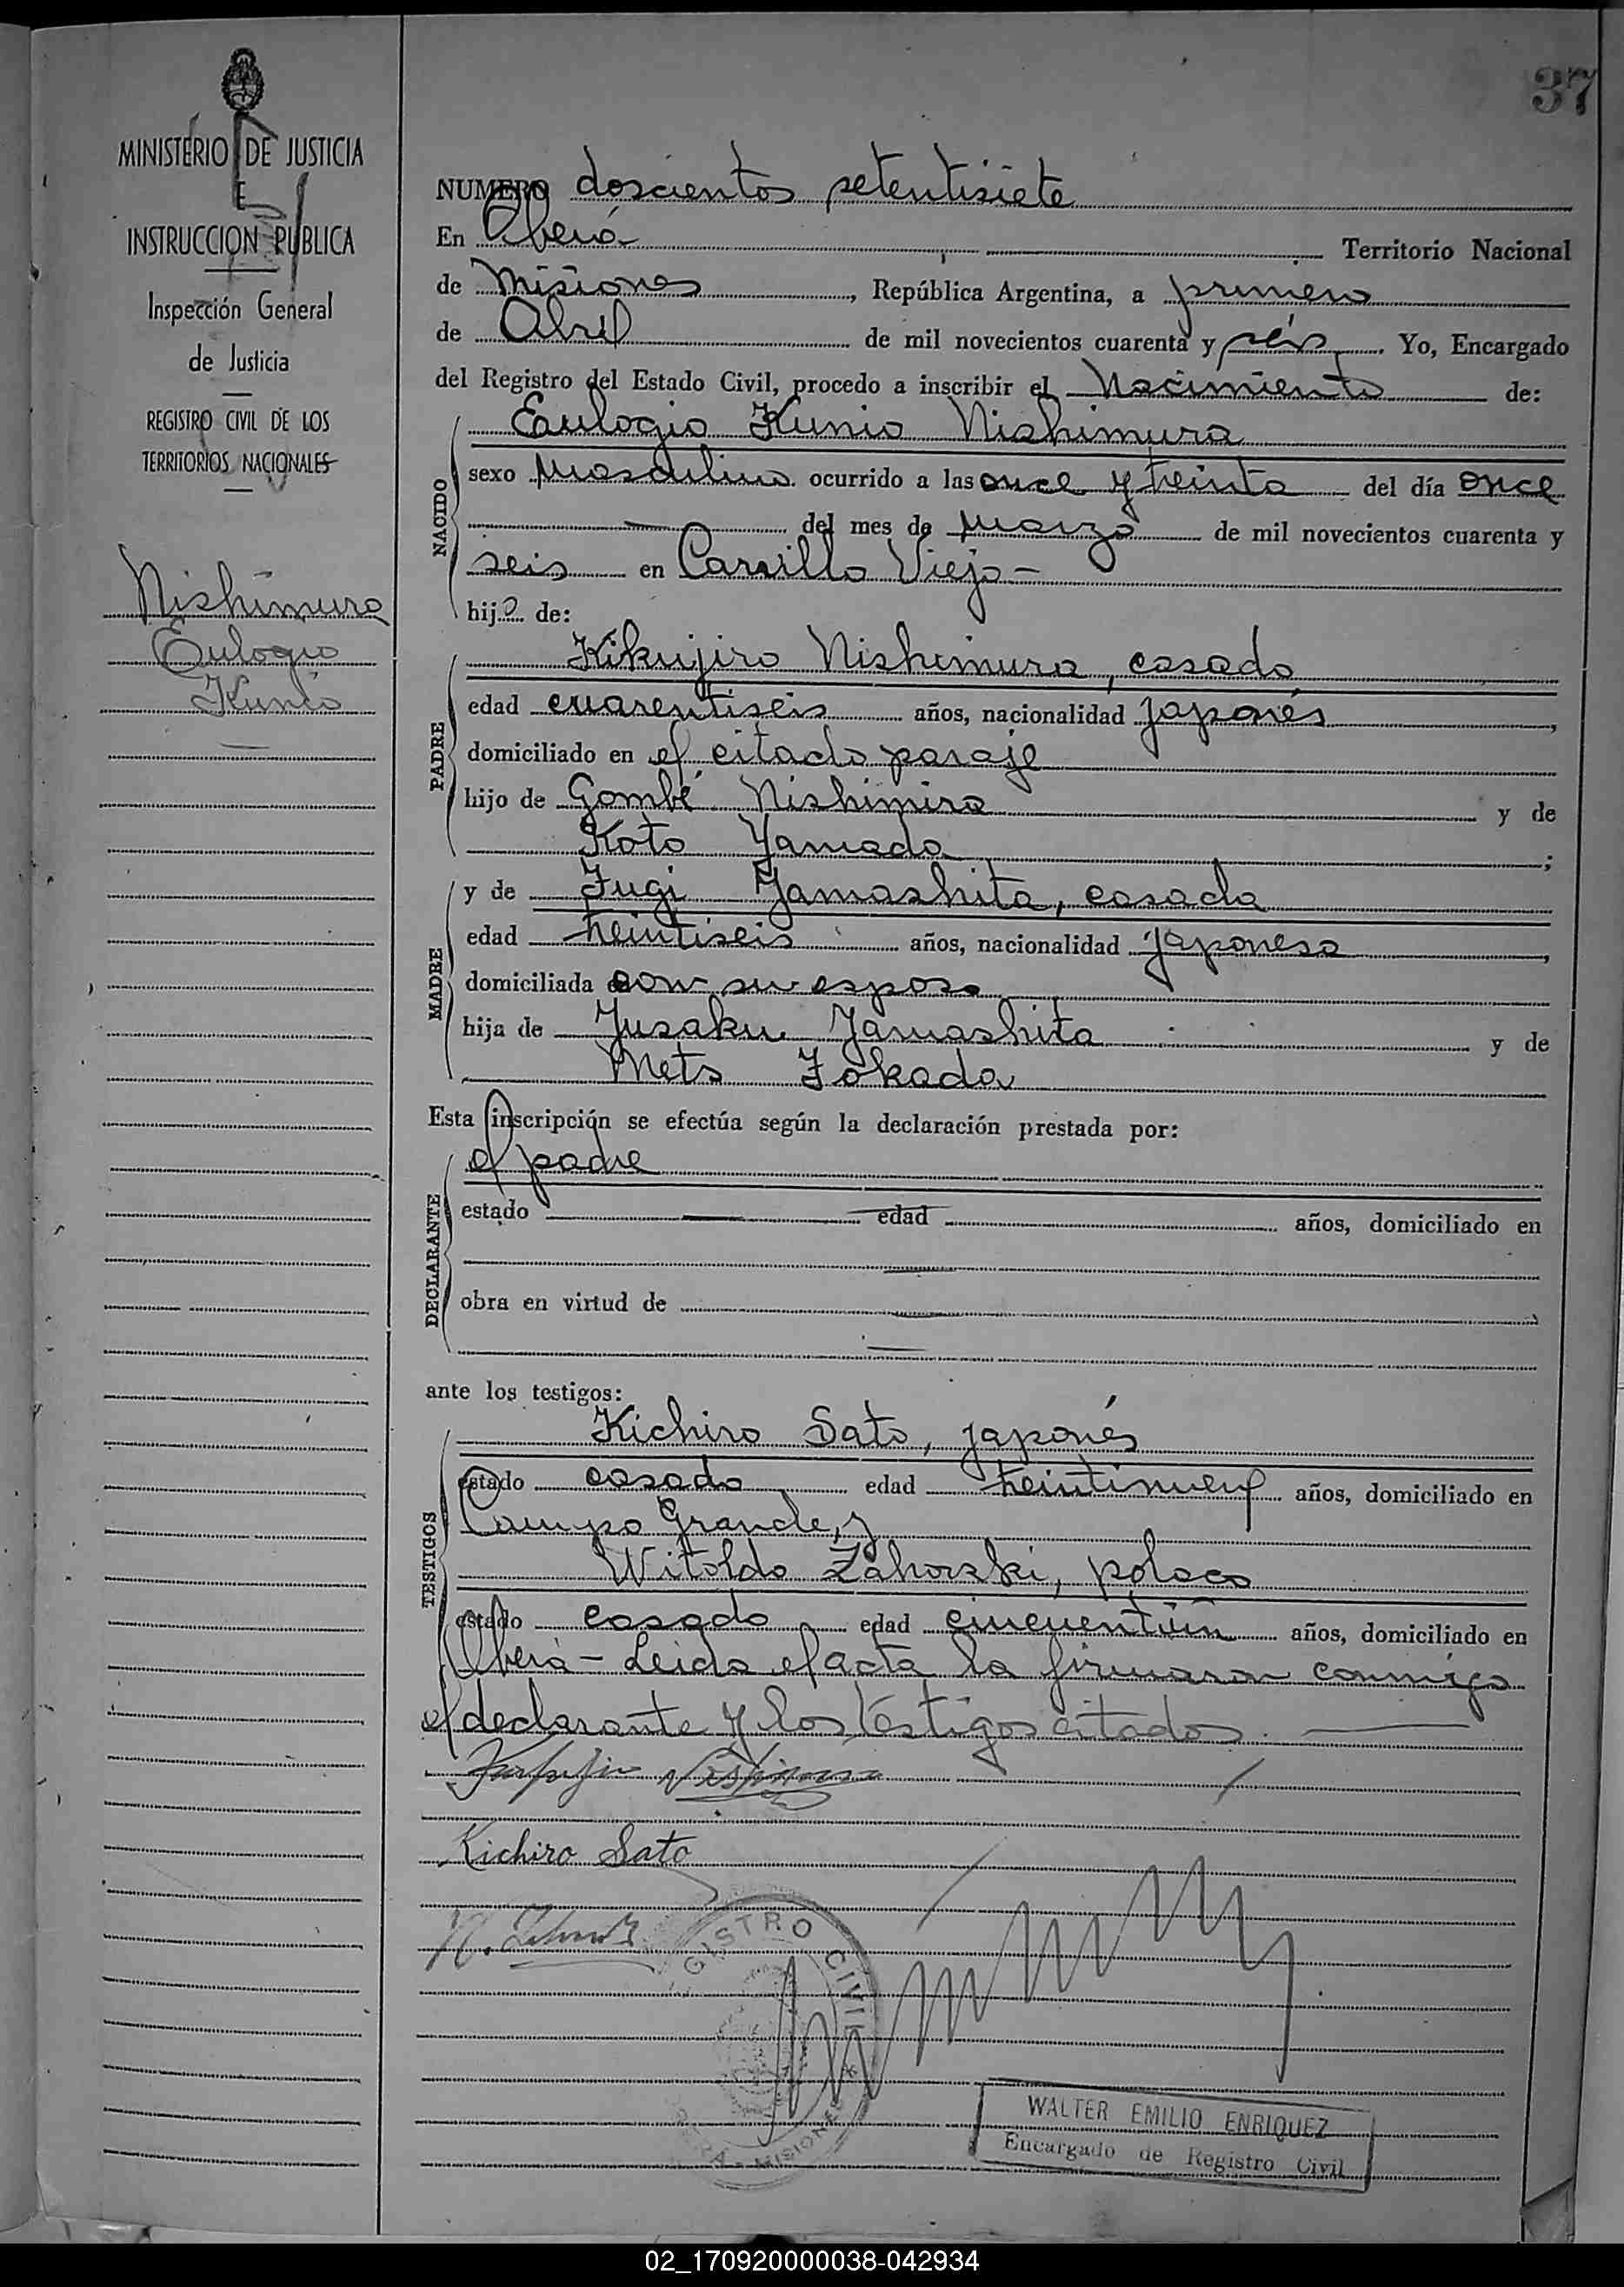 37
MINISTERIO DE JUSTICIA
E
INSTRUCCION PUBLICA
Inspección General
de Justicia
REGISTRO CIVIL DE LOS
TERRITORIOS NACIONALES
Nishimura
Eulogio
Kunio
NUMERO doscientos setentisiete
En Oberá Territorio Nacional
de Misiones, República Argentina, a primero
de Abril de mil novecientos cuarenta y seis. Yo, Encargado
del Registro del Estado Civil, procedo a inscribir el Nacimiento de:
NACIDO
Eulogio Kunio Nishimura
sexo masculino ocurrido a las once y treinta del día once
del mes de marzo de mil novecientos cuarenta y
seis en Viejo
hijo de:
PADRE
Kikujiro Nishimura, casado
edad cuarentiseis años, nacionalidad japonés,
domiciliado en el citado paraje
hijo de Gombé Nishimira y de
Koto Yamada;
MADRE
y de Fugi Yamashita, casada
edad treintiseis años, nacionalidad japonesa,
domiciliada con su esposo
hija de Yusaku Yamashita y de
Mets Fokada
Esta inscripción se efectúa según la declaración prestada por:
DECLARANTE
el padre
estado edad años, domiciliado en
obra en virtud de
ante los testigos:
TESTIGOS
Kichiro Sato, japonés
estado casado edad treintinueve años, domiciliado en
Campo Grande, y
Witoldo Zahorski, polaco
estado casado edad cincuentiún años, domiciliado en
Oberá - Leida el acta la firmaron conmigo
el declarante y los testigos citados.
Kichiro Sato
REGISTRO CIVIL
MISIONES
WALTER EMILIO ENRIQUEZ
Encargado de Registro Civil
02_170920000038-042934